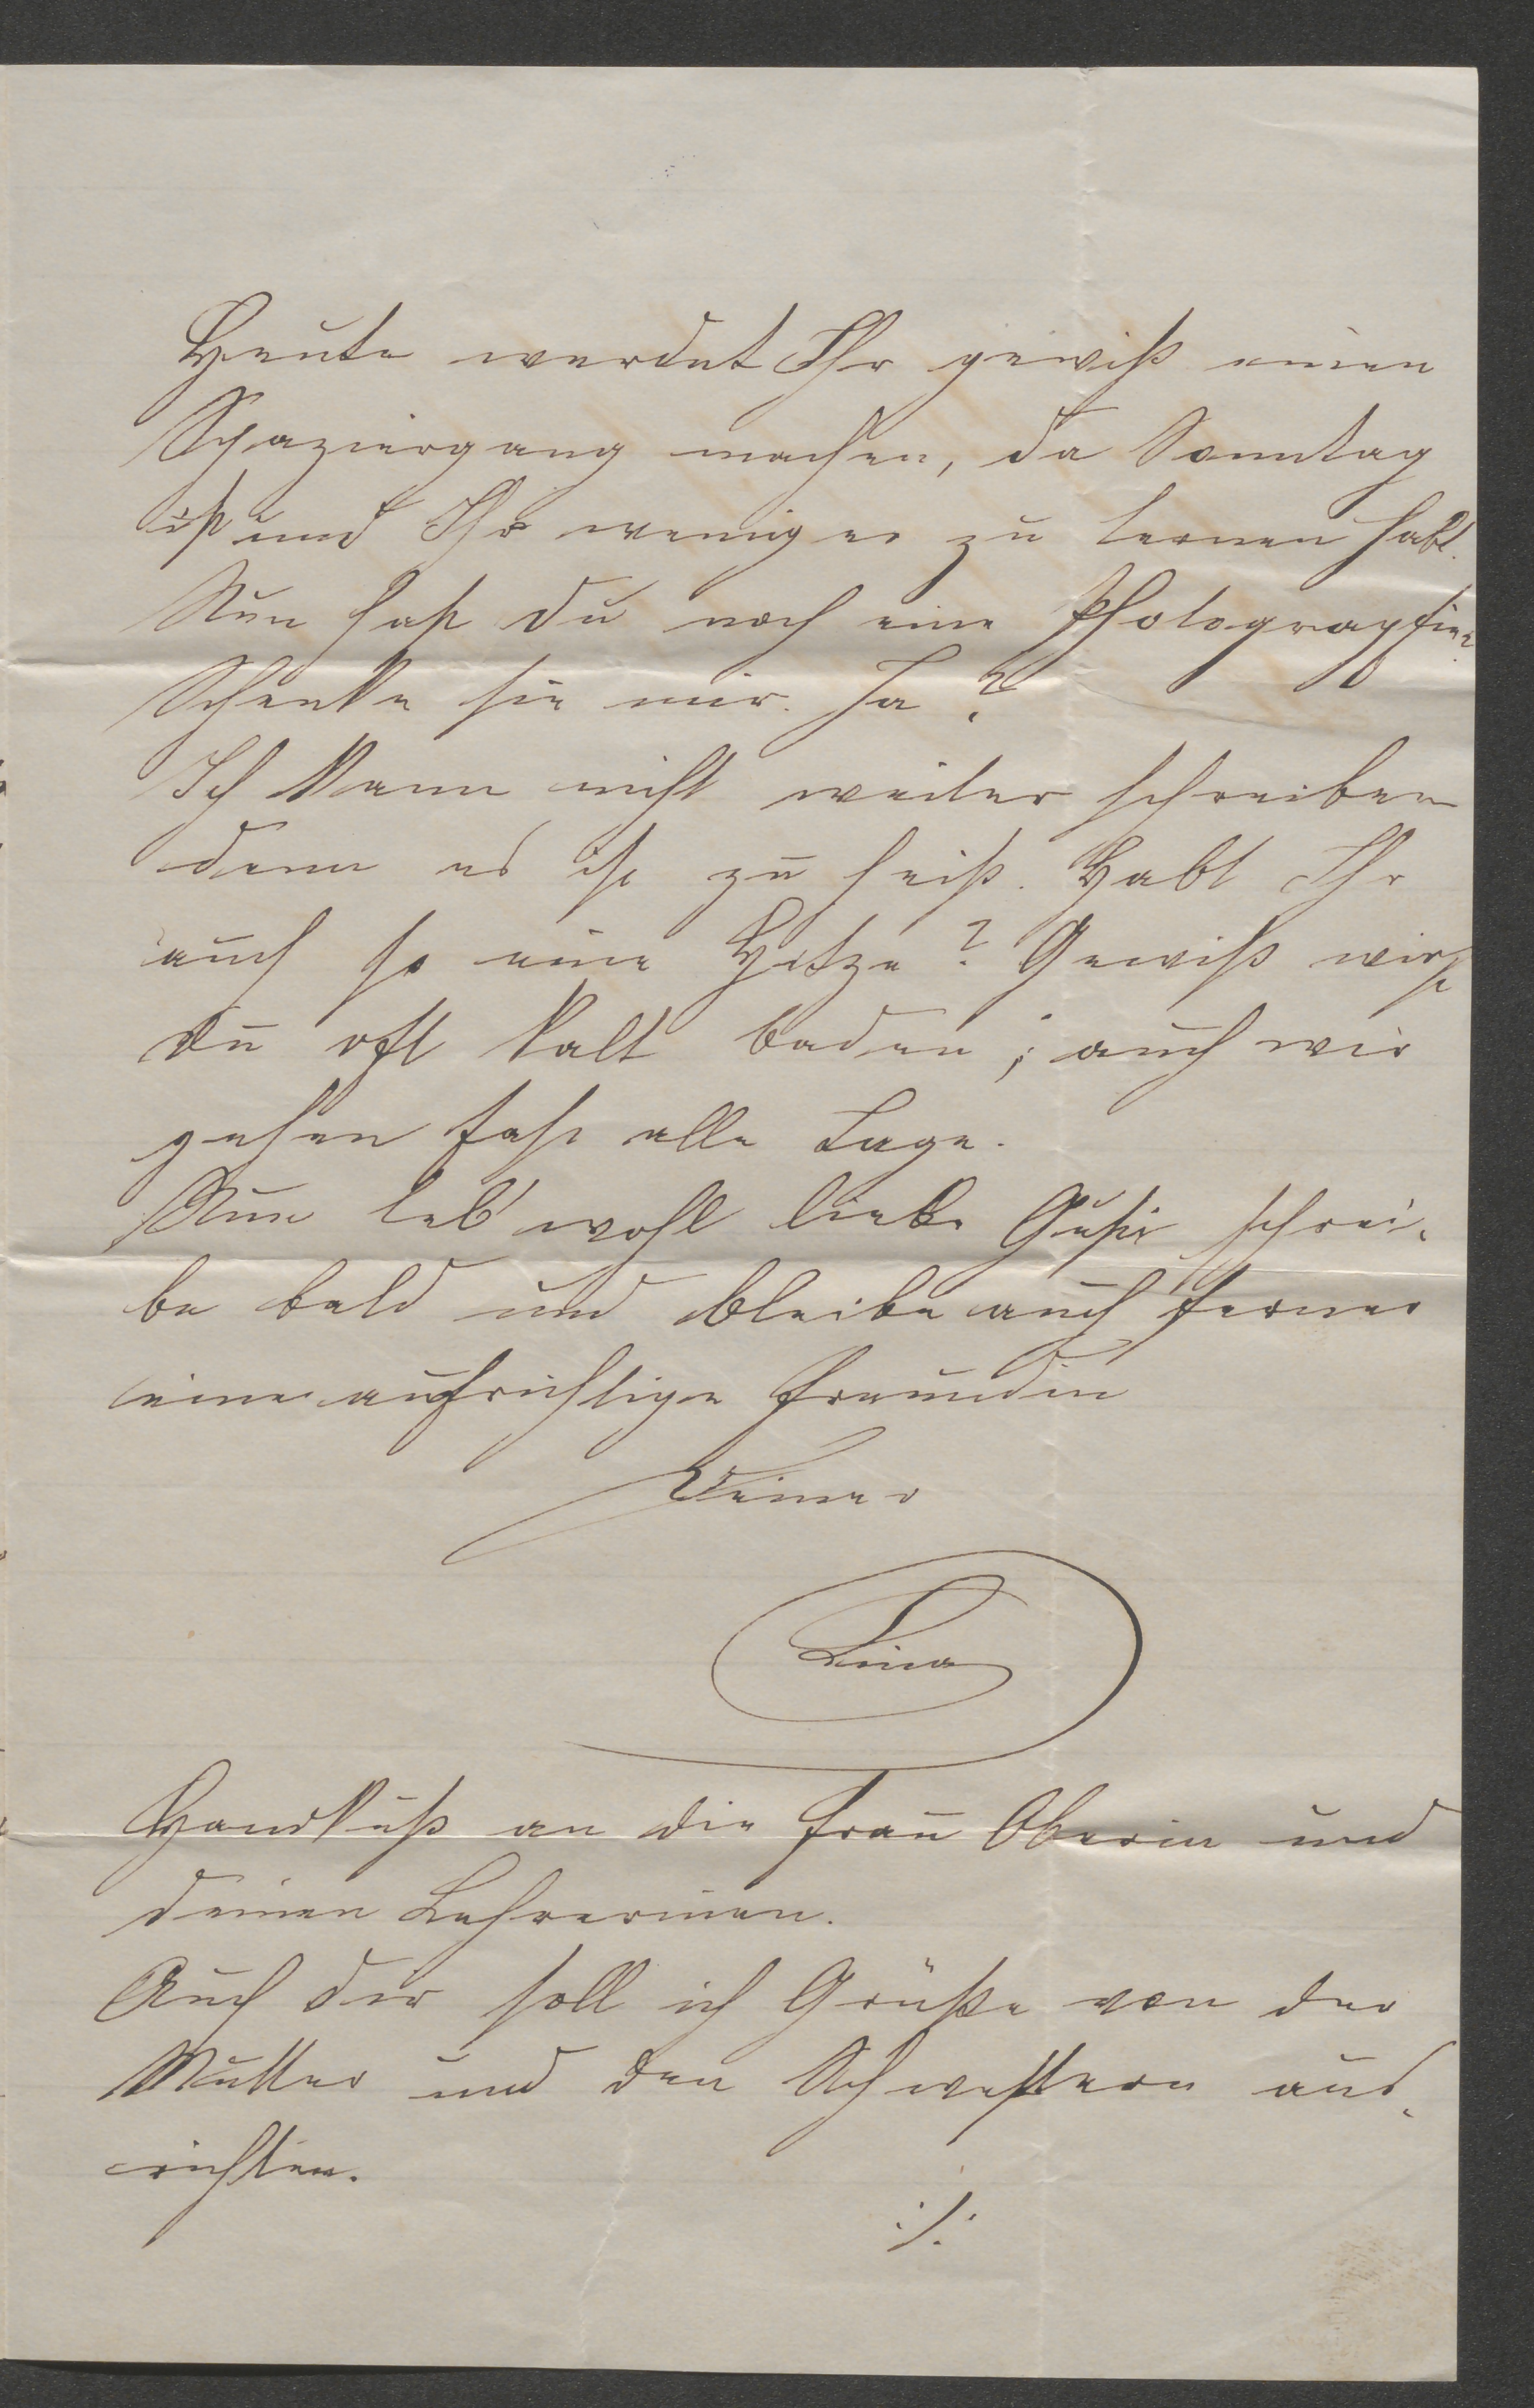 Heute werdet Ihr gewiß einen
Spaziergang machen, da Sonntag
ist und Ihr weniger zu lernen habt.
Nun hast du noch eine Photographie?
Schenke sie mir. Ja?
Ich kann nicht weiter schreiben
denn es ist zu heiß. Habt Ihr
auch so eine Hitze? Gewiß wirst
du oft kalt baden; auch wir
gehen fast alle Tage.
Nun leb' wohl liebe Gusti schrei-
be bald und bleibe auch ferner
eine aufrichtige Freundin
Deiner
Lina
Handkuß an die Frau Oberin und
deinen Lehrerinen.
Auch dir soll ich Grüße von der
Mutter und den Schwestern aus-
richten.
./.